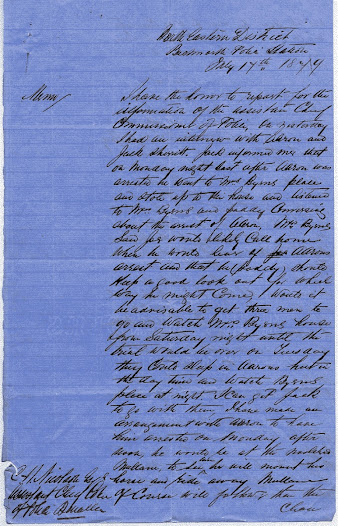 North Eastern District
Police Station
July 17th 1879
Memo
I have the honor to report for the
information of the Assistant Chief
Commissioner of Police, that yesterday
I had an interview with Aaron and
Jack Sherritt. Jack informed me that
on Monday night last after Aaron was
arrested he went to Mrs Byrnes place
and stole up to the house and listened
to Mrs Byrne and Paddy Conversing
about the arrest of Aaron, Mrs Byrne
said Joe would likely Call home
when he would hear of Aarons
arrest and that he (Paddy) should
keep a good look out for which
day he might Come, would it
be advisable to get three men to
go and Watch Mrs Byrnes house
from Saturday night until the
trial would be over on Tuesday
they Could Sleep in Aarons hut in
the day time and Watch Byrnes
place at night I can get Jack
to go with them, I have made an
arrangement with Aaron to have
him arrested on Monday after
noon, he would be at the
Mullane, to he will mount his
horse and ride away Mullane
of Course will follow, then the
C H Nicolson Esq
Assistant Chief Com
of Police Benalla
Chase